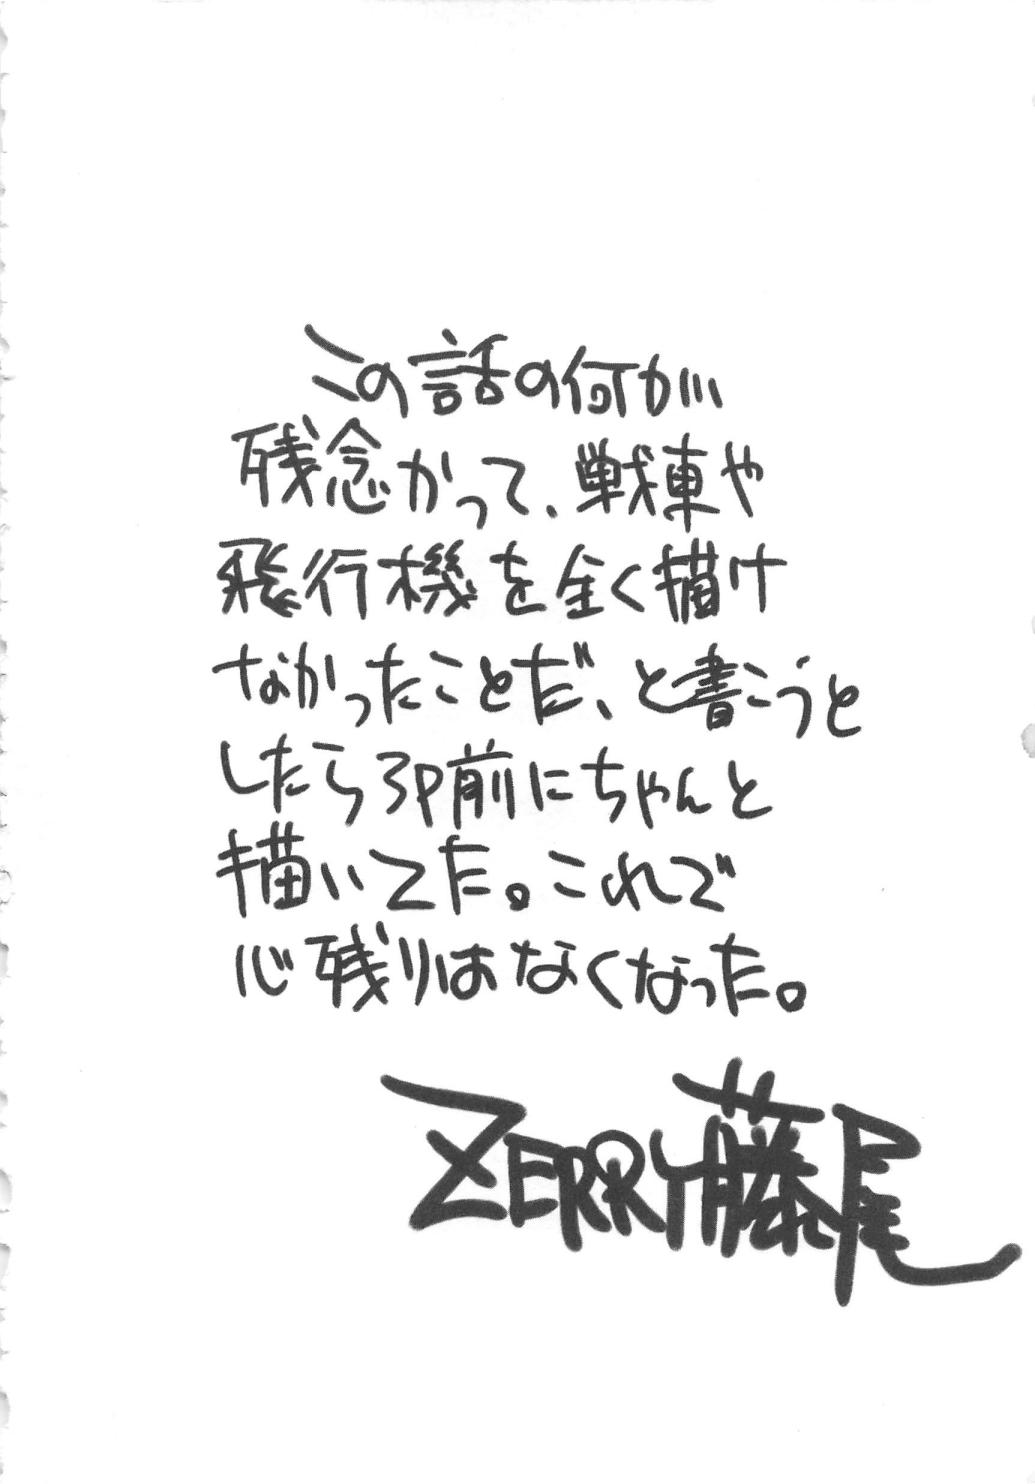 この話の何が
残念かって、戦車や
飛行機を全く描け
なかったことだ、と書こうと
したら3P前にちゃんと
描いてた。これで
心残りはなくなった。
ZERRY藤尾